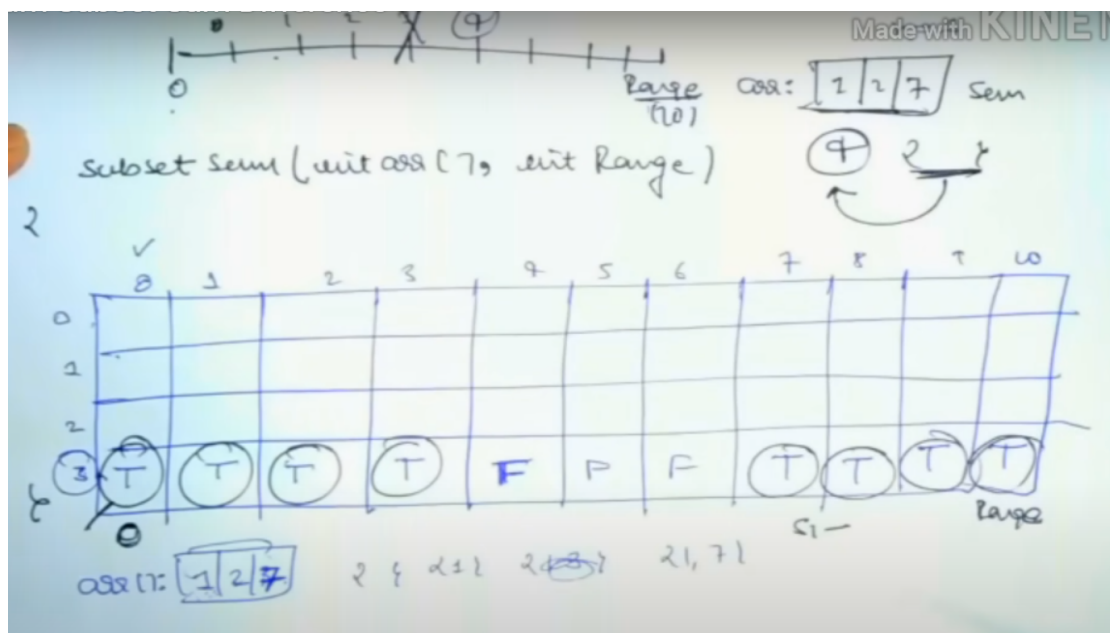 Made with KINE
0 1 2 3 4
0 Range (10) arr: 1 2 7 Sum
Subset Sum (int arr[], int Range) 4 { }
{
0 1 2 3 4 5 6 7 8 9 10
0
1
2
3 T T T T F F F T T T T
} 0 S1 - Range
arr[]: 1 2 7 { } {1} {1, 7}